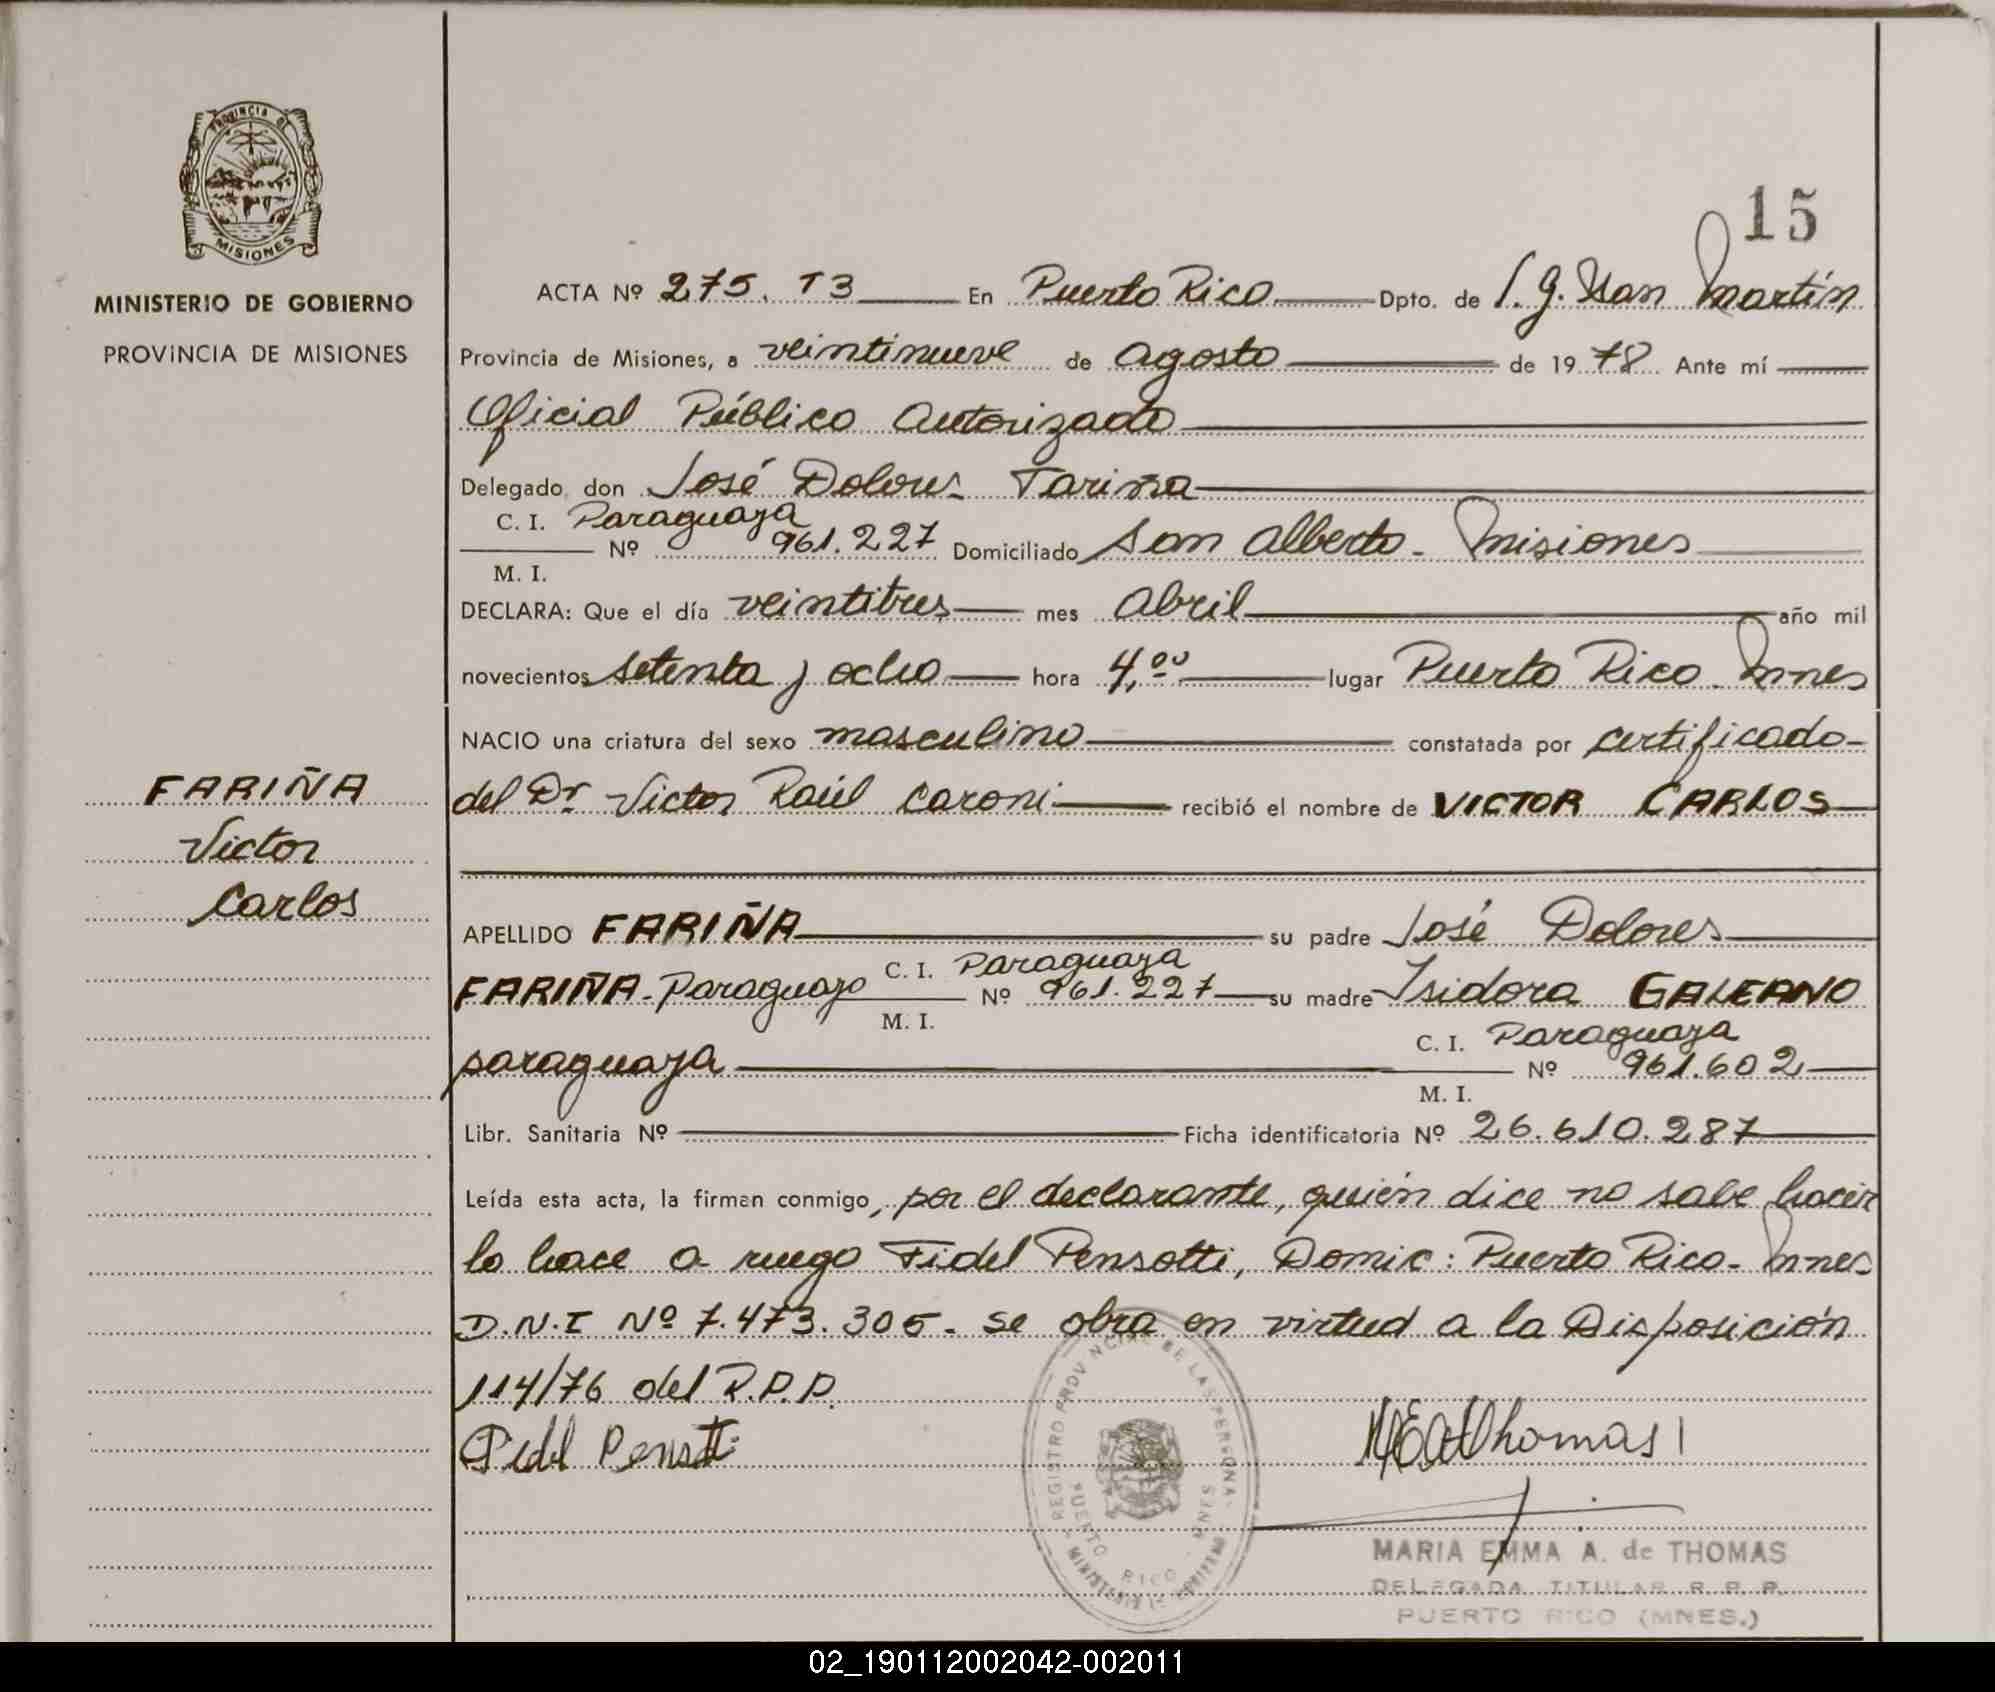 15
PROVINCIA DE
MISIONES
MINISTERIO DE GOBIERNO
PROVINCIA DE MISIONES
FARIÑA
Victor
Carlos
ACTA Nº 275. T3 En Puerto Rico Dpto. de L. G. San Martín
Provincia de Misiones, a veintinueve de Agosto de 1978 Ante mí
Oficial Público Autorizado
Delegado don José Dolores Fariña
C. I. Paraguaya
Nº 961.227 Domiciliado San Alberto - Misiones
M. I.
DECLARA: Que el día veintitres mes Abril año mil
novecientos setenta y ocho hora 4,00 lugar Puerto Rico - Mnes
NACIO una criatura del sexo masculino constatada por certificado
del Dr Victor Raúl Caroni recibió el nombre de VICTOR CARLOS
APELLIDO FARIÑA su padre José Dolores
FARIÑA - Paraguayo C. I. Paraguaya Nº 961.227 su madre Isidora GALEANO
M. I.
paraguaya C. I. Paraguaya Nº 961.602
M. I.
Libr. Sanitaria Nº Ficha identificatoria Nº 26.610.287
Leída esta acta, la firman conmigo, por el declarante, quién dice no sabe hacer
lo hace a ruego Fidel Pensotti, Domic: Puerto Rico - Mnes
D.N.I Nº 7.473.305. se obra en virtud a la Disposición
114/76 del R.P.P.
Fidel Pensotti
MEAdThomas
REGISTRO PROVINCIAL DE LAS PERSONAS
PUERTO RICO - MNES
MINISTERIO DE GOBIERNO
MARIA EMMA A. de THOMAS
DELEGADA TITULAR R. P. P.
PUERTO RICO (MNES.)
02_190112002042-002011